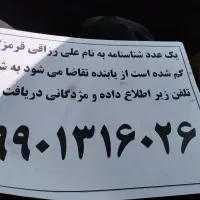 یک عدد شناسنامه به نام علی رزاقی
گم شده است از یابنده تقاضا می شود به
تلفن زیر اطلاع داده و مژدگانی دریافت
۹۹۰۱۳۱۶۰۲۶